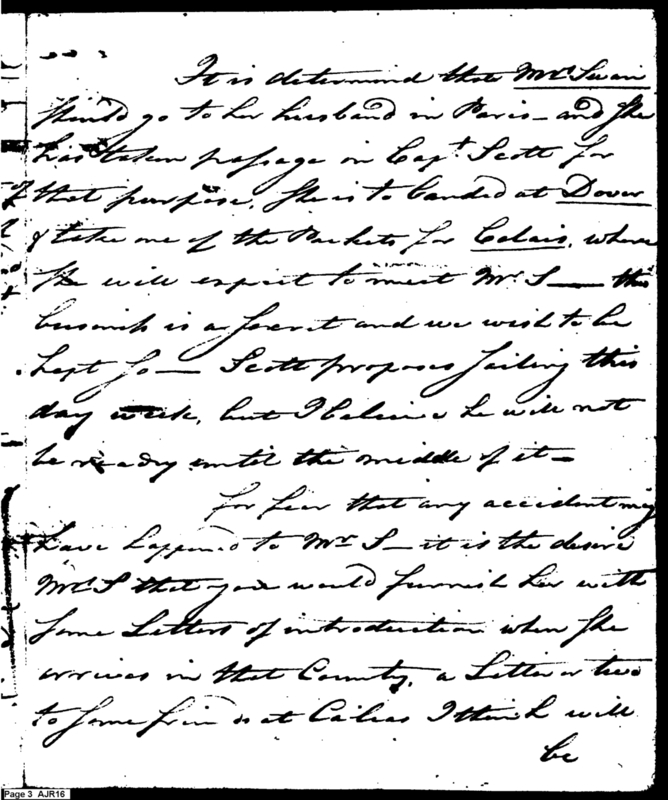 It is determind that Mrs. Swan
should go to her husband in Paris - and she
has taken passage in Capt. Scott for
that purpose, she is to landed at Dover
& take one of the Packets for Calais, where
she will expect to meet Mr. S — this
business is a secret and we wish to be
kept so — Scott proposes sailing this
day week, but I believe he will not
be ready until the middle of it —
for fear that any accident may
have happened to Mr. S — it is the desire
Mrs. S that you would furnish her with
some Letters of introduction when she
arrives in that County, a Letter or two
to some friends at Calias I think will
be
Page 3 AJR16